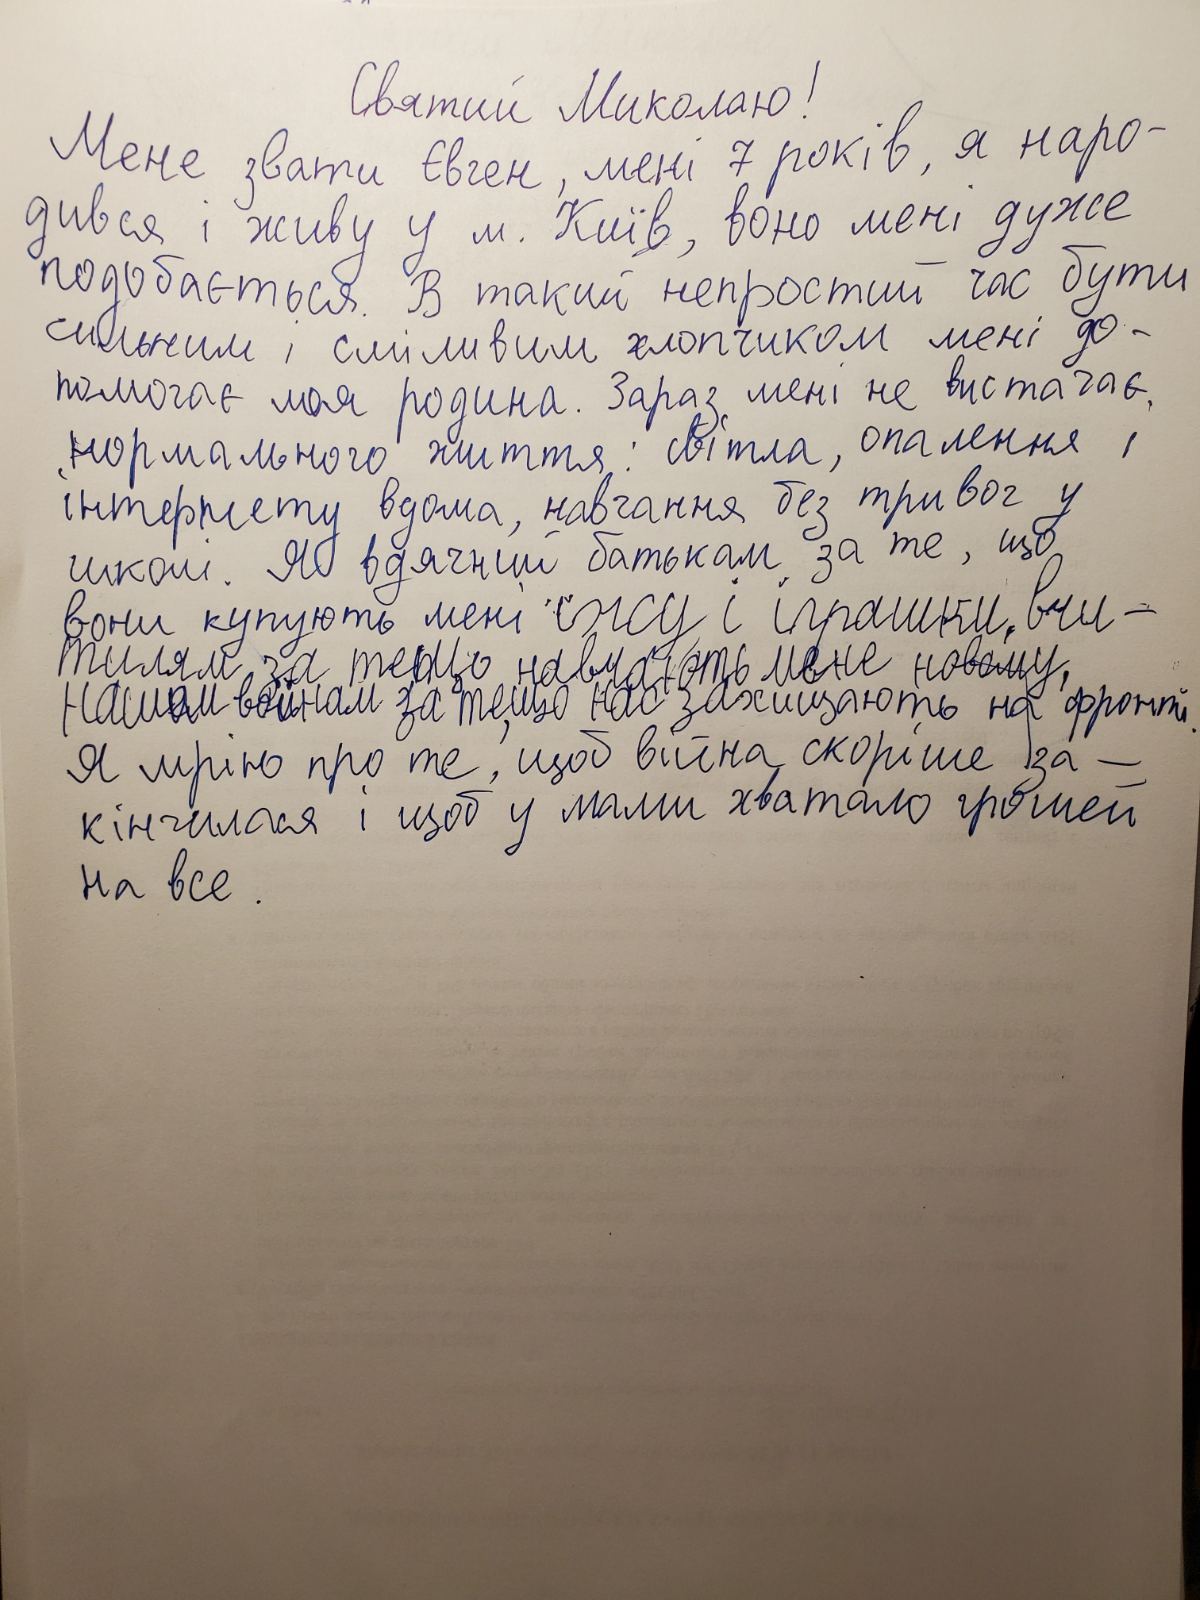 Святий Миколаю!
Мене звати Євген, мені 7 років, я наро-
дився і живу у м. Київ, воно мені дуже
подобається. В такий непростий час бути
сильним і сміливим хлопчиком мені до-
помогає моя родина. Зараз мені не вистачає
нормального життя: світла, опалення і
інтернету вдома, навчання без тривог у
школі. Я вдячний батькам за те, що
вони купують мені їжу і іграшки, вчи-
тилям за те що навчають мене новому,
Нашим воїнам за те, що нас захищають на фронті.
Я мрію про те, щоб війна скоріше за-
кінчилася і щоб у мами хватало грошей
на все.